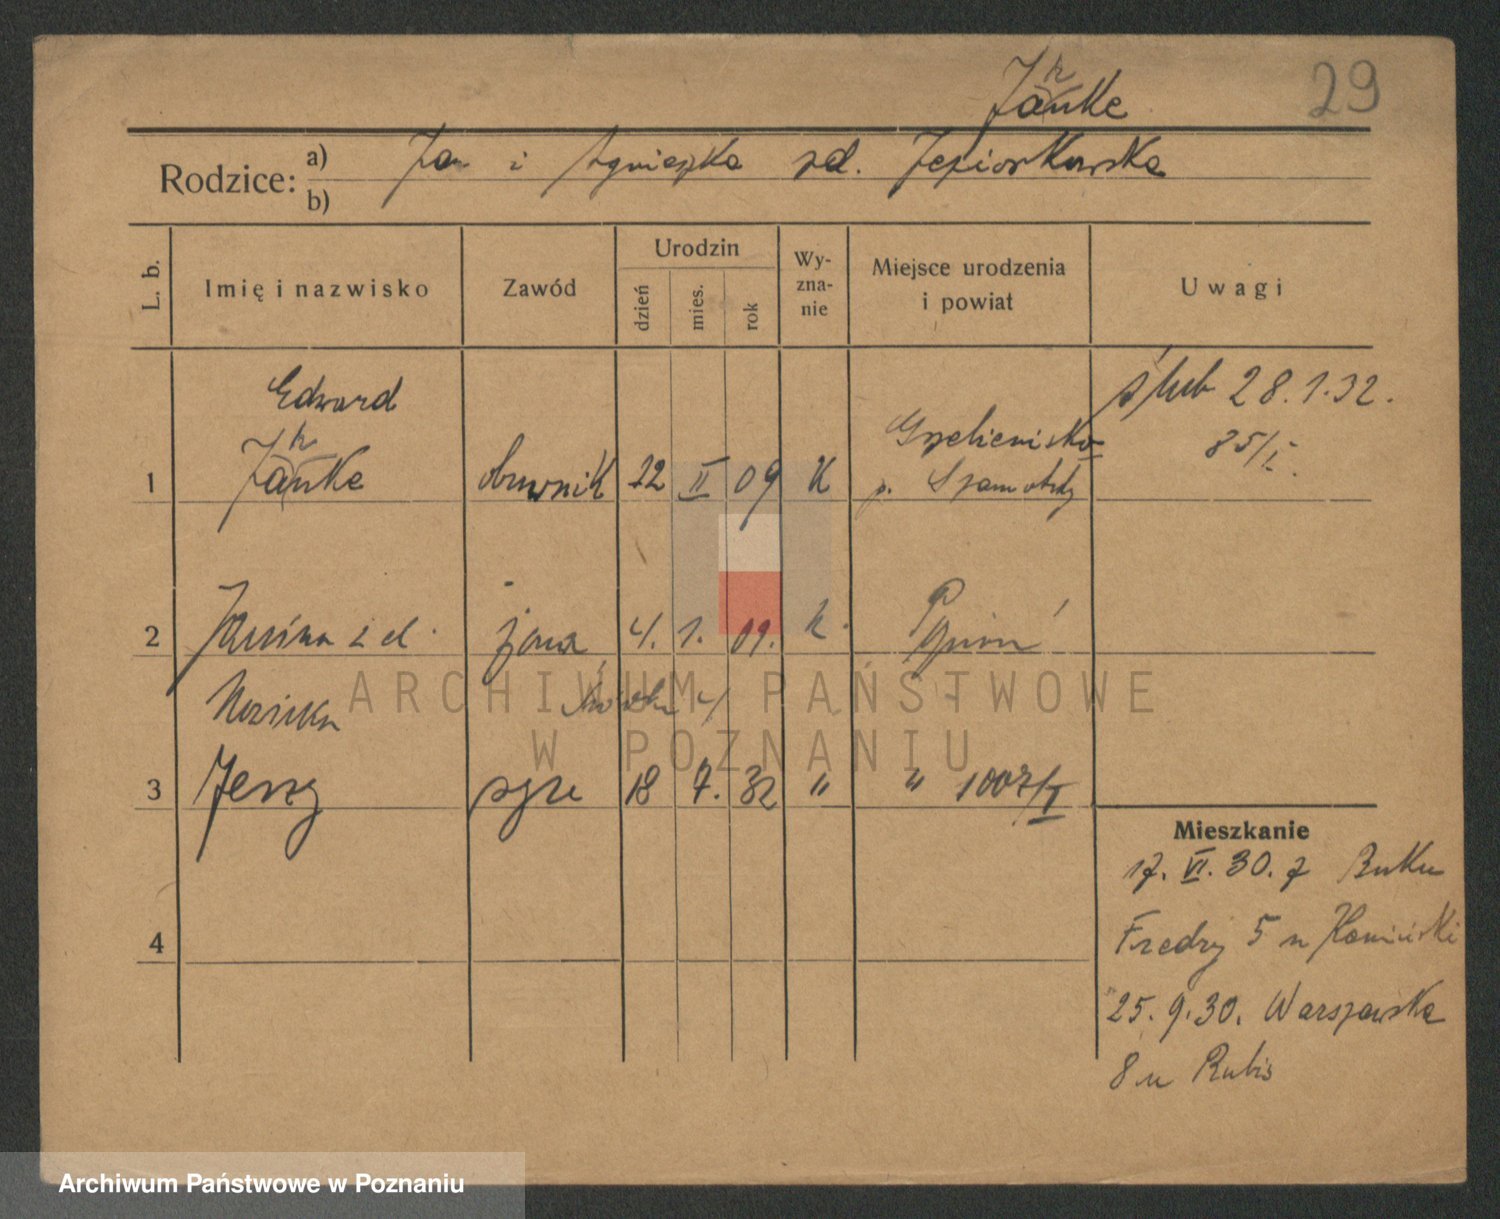 29
Janke
Rodzice: a) Jan i Agnieszka zd. Jeziorkowska
b)
L. b. Imię i nazwisko Zawód Urodzin dzień mies. rok Wy-zna-nie Miejsce urodzenia i powiat Uwagi
Edward ślub 28.1.32.
85/I.
1 Janke obuwnik 22 II 09 K p. Szamotuły
2 Janina zd. żona 4. 1. 09. k.
3 Jerzy syn 18 7. 32 " " 1007/I
Mieszkanie
17. VI. 30. z Buku
4
Fredry 5 u Kamiński
25. 9. 30. Warszawska
8 u Rubis
ARCHIWUM PAŃSTWOWE
W POZNANIU
Archiwum Państwowe w Poznaniu